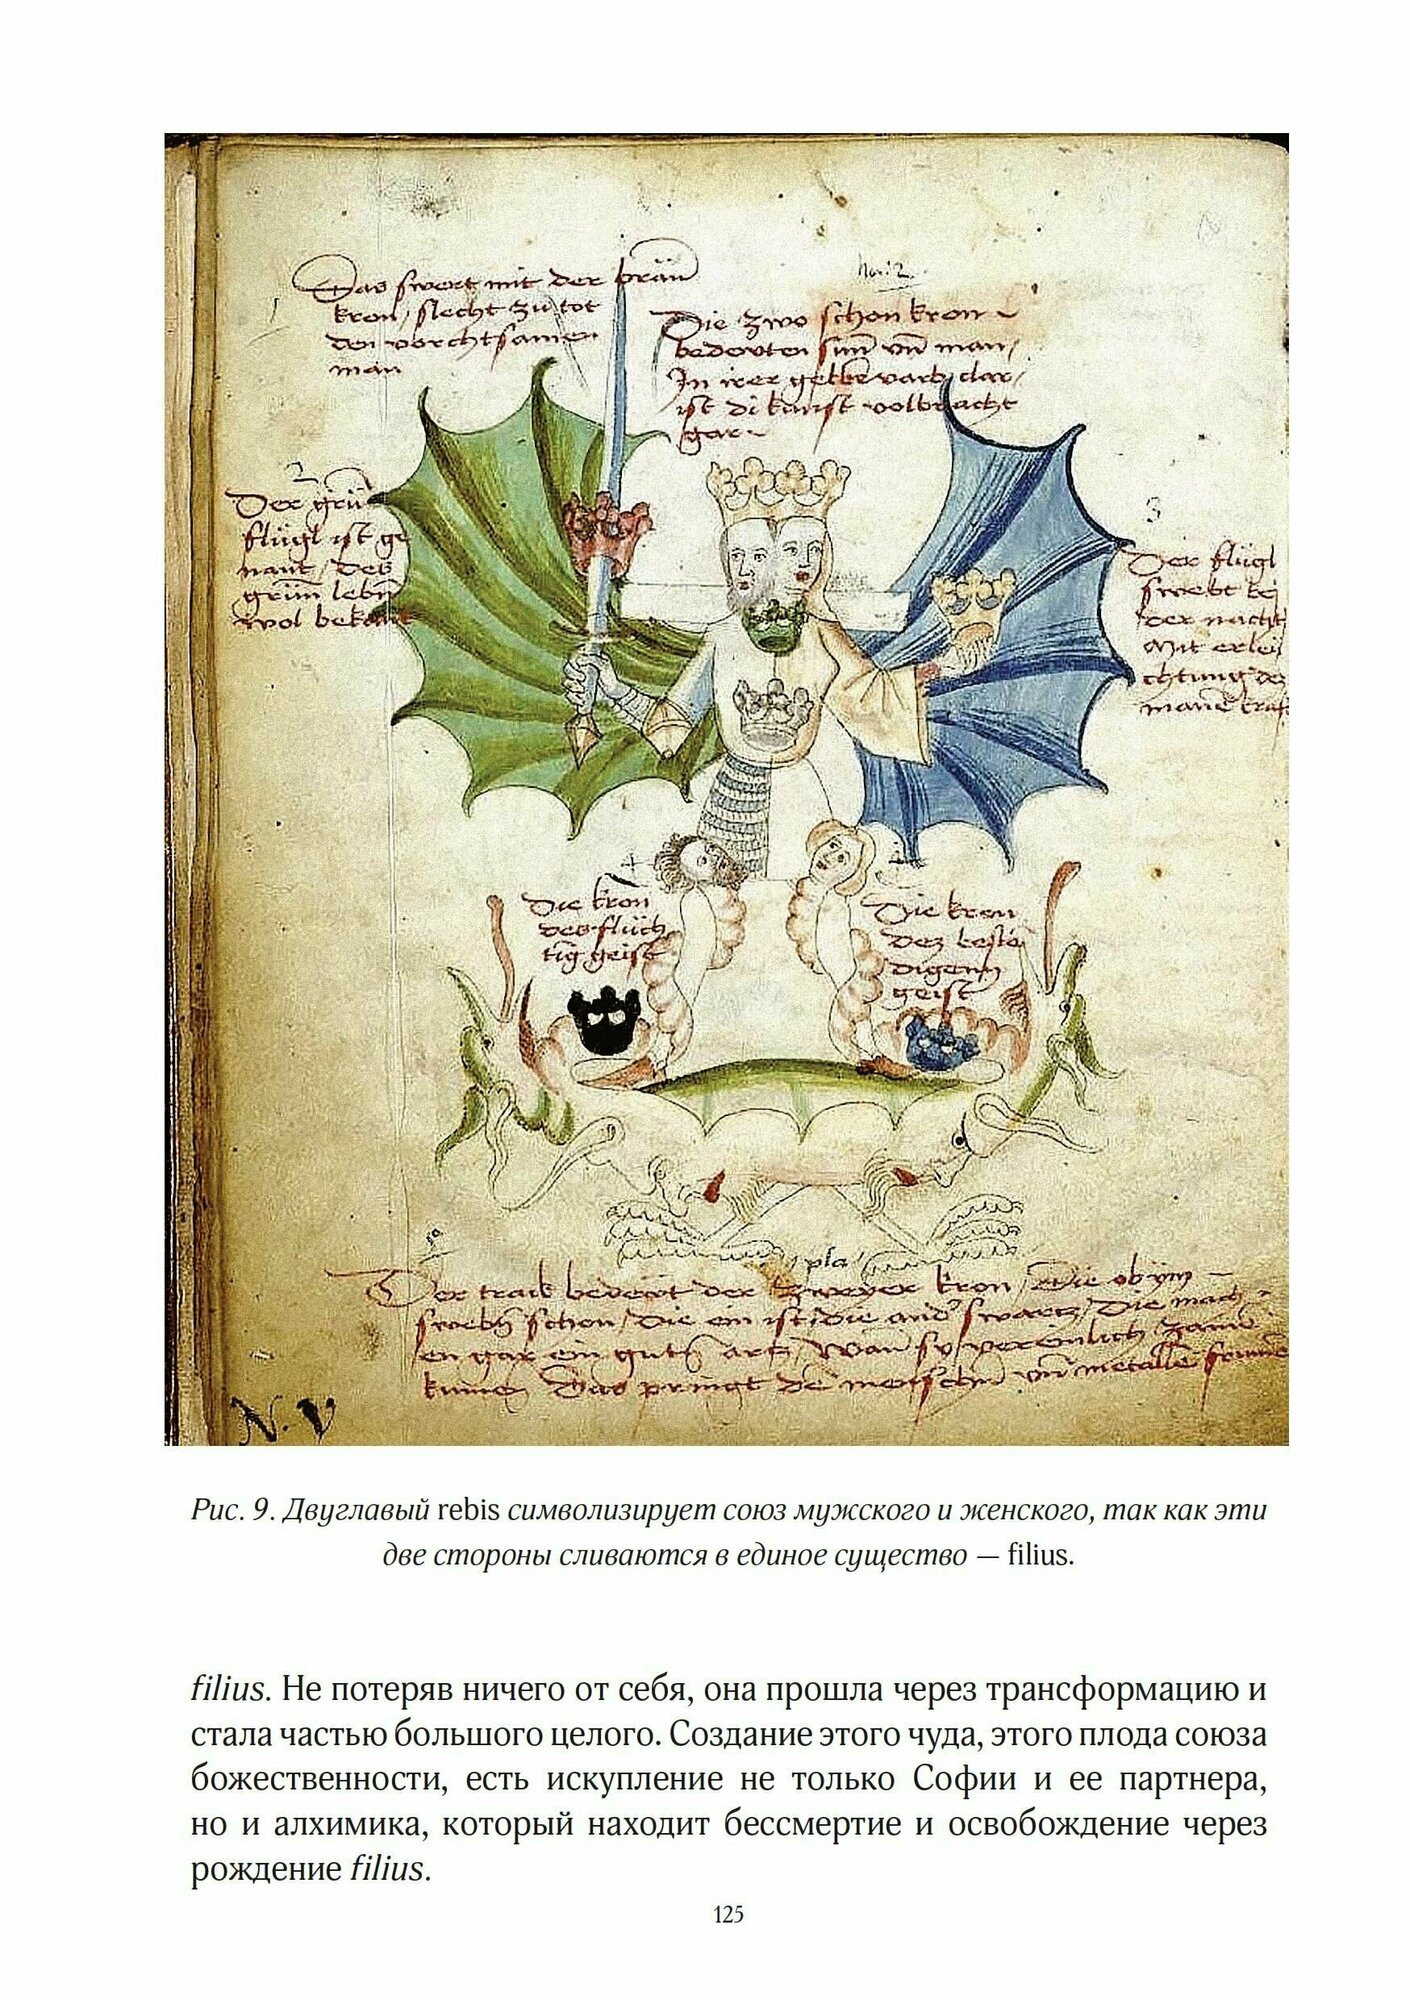 Das swert mit der bräun
kron, slecht zu tot
den vorchtsamen
man
Die zwo schon kron
bedevten sun vn man,
In irer gelben varb, dar,
ist di kunst volbracht
gar
2
Der grün
flügl ist ge
nant, des
grün lebn
wol bekant
3
Der flügl
swebt bei
der nacht
Mit erlei
chtung des
Die kron
des flüch
tig geist
Die kron
dez bestä
digenn
geist
pla
Der trak bedevt der zweyer kron, Die ob ym
swebn schon, die ein ist, die and swartz, Die mach
en gar ein gutn artz, Wan sy
kumen Das pringt de menschn vn metalle
N. V
Рис. 9. Двуглавый rebis символизирует союз мужского и женского, так как эти
две стороны сливаются в единое существо — filius.
filius. Не потеряв ничего от себя, она прошла через трансформацию и
стала частью большого целого. Создание этого чуда, этого плода союза
божественности, есть искупление не только Софии и ее партнера,
но и алхимика, который находит бессмертие и освобождение через
рождение filius.
125